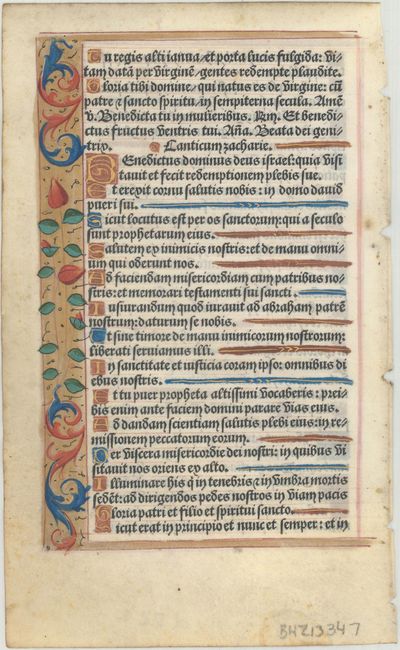 Tu regis alti ianua / et porta lucis fulgida: vi⸗
tam datā per virginē / gentes redempte plaudite.
Gloria tibi domine / qui natus es de virgine: cū
patre ⁊ sancto spiritu / in sempiterna secula. Amē
℣. Benedicta tu in mulieribus. ℟m. Et benedi⸗
ctus fructus ventris tui. Aña. Beata dei geni⸗
trix. Canticum zacharie.
BEnedictus dominus deus israel: quia visi
tauit et fecit redemptionem plebis sue.
Et erexit cornu salutis nobis: in domo dauid
pueri sui.
Sicut locutus est per os sanctorum: qui a seculo
sunt prophetarum eius.
Salutem ex inimicis nostris: et de manu omni⸗
um qui oderunt nos.
Ad faciendam misericordiam cum patribus no⸗
stris: et memorari testamenti sui sancti.
Iusiurandum quod iurauit ad abraham patrē
nostrum: daturum se nobis.
Ut sine timore de manu inimicorum nostrorum:
liberati seruiamus illi.
In sanctitate et iusticia coram ipso: omnibus di
ebus nostris.
Et tu puer propheta altissimi vocaberis: prei⸗
bis enim ante faciem domini parare vias eius.
Ad dandam scientiam salutis plebi eius: in re⸗
missionem peccatorum eorum.
Per viscera misericordie dei nostri: in quibus vi
sitauit nos oriens ex alto.
Illuminare his q̄ in tenebris ⁊ in vmbra mortis
sedēt: ad dirigendos pedes nostros in viam pacis
Gloria patri et filio et spiritui sancto.
Sicut erat in principio et nunc et semper: et in
BHZ13347